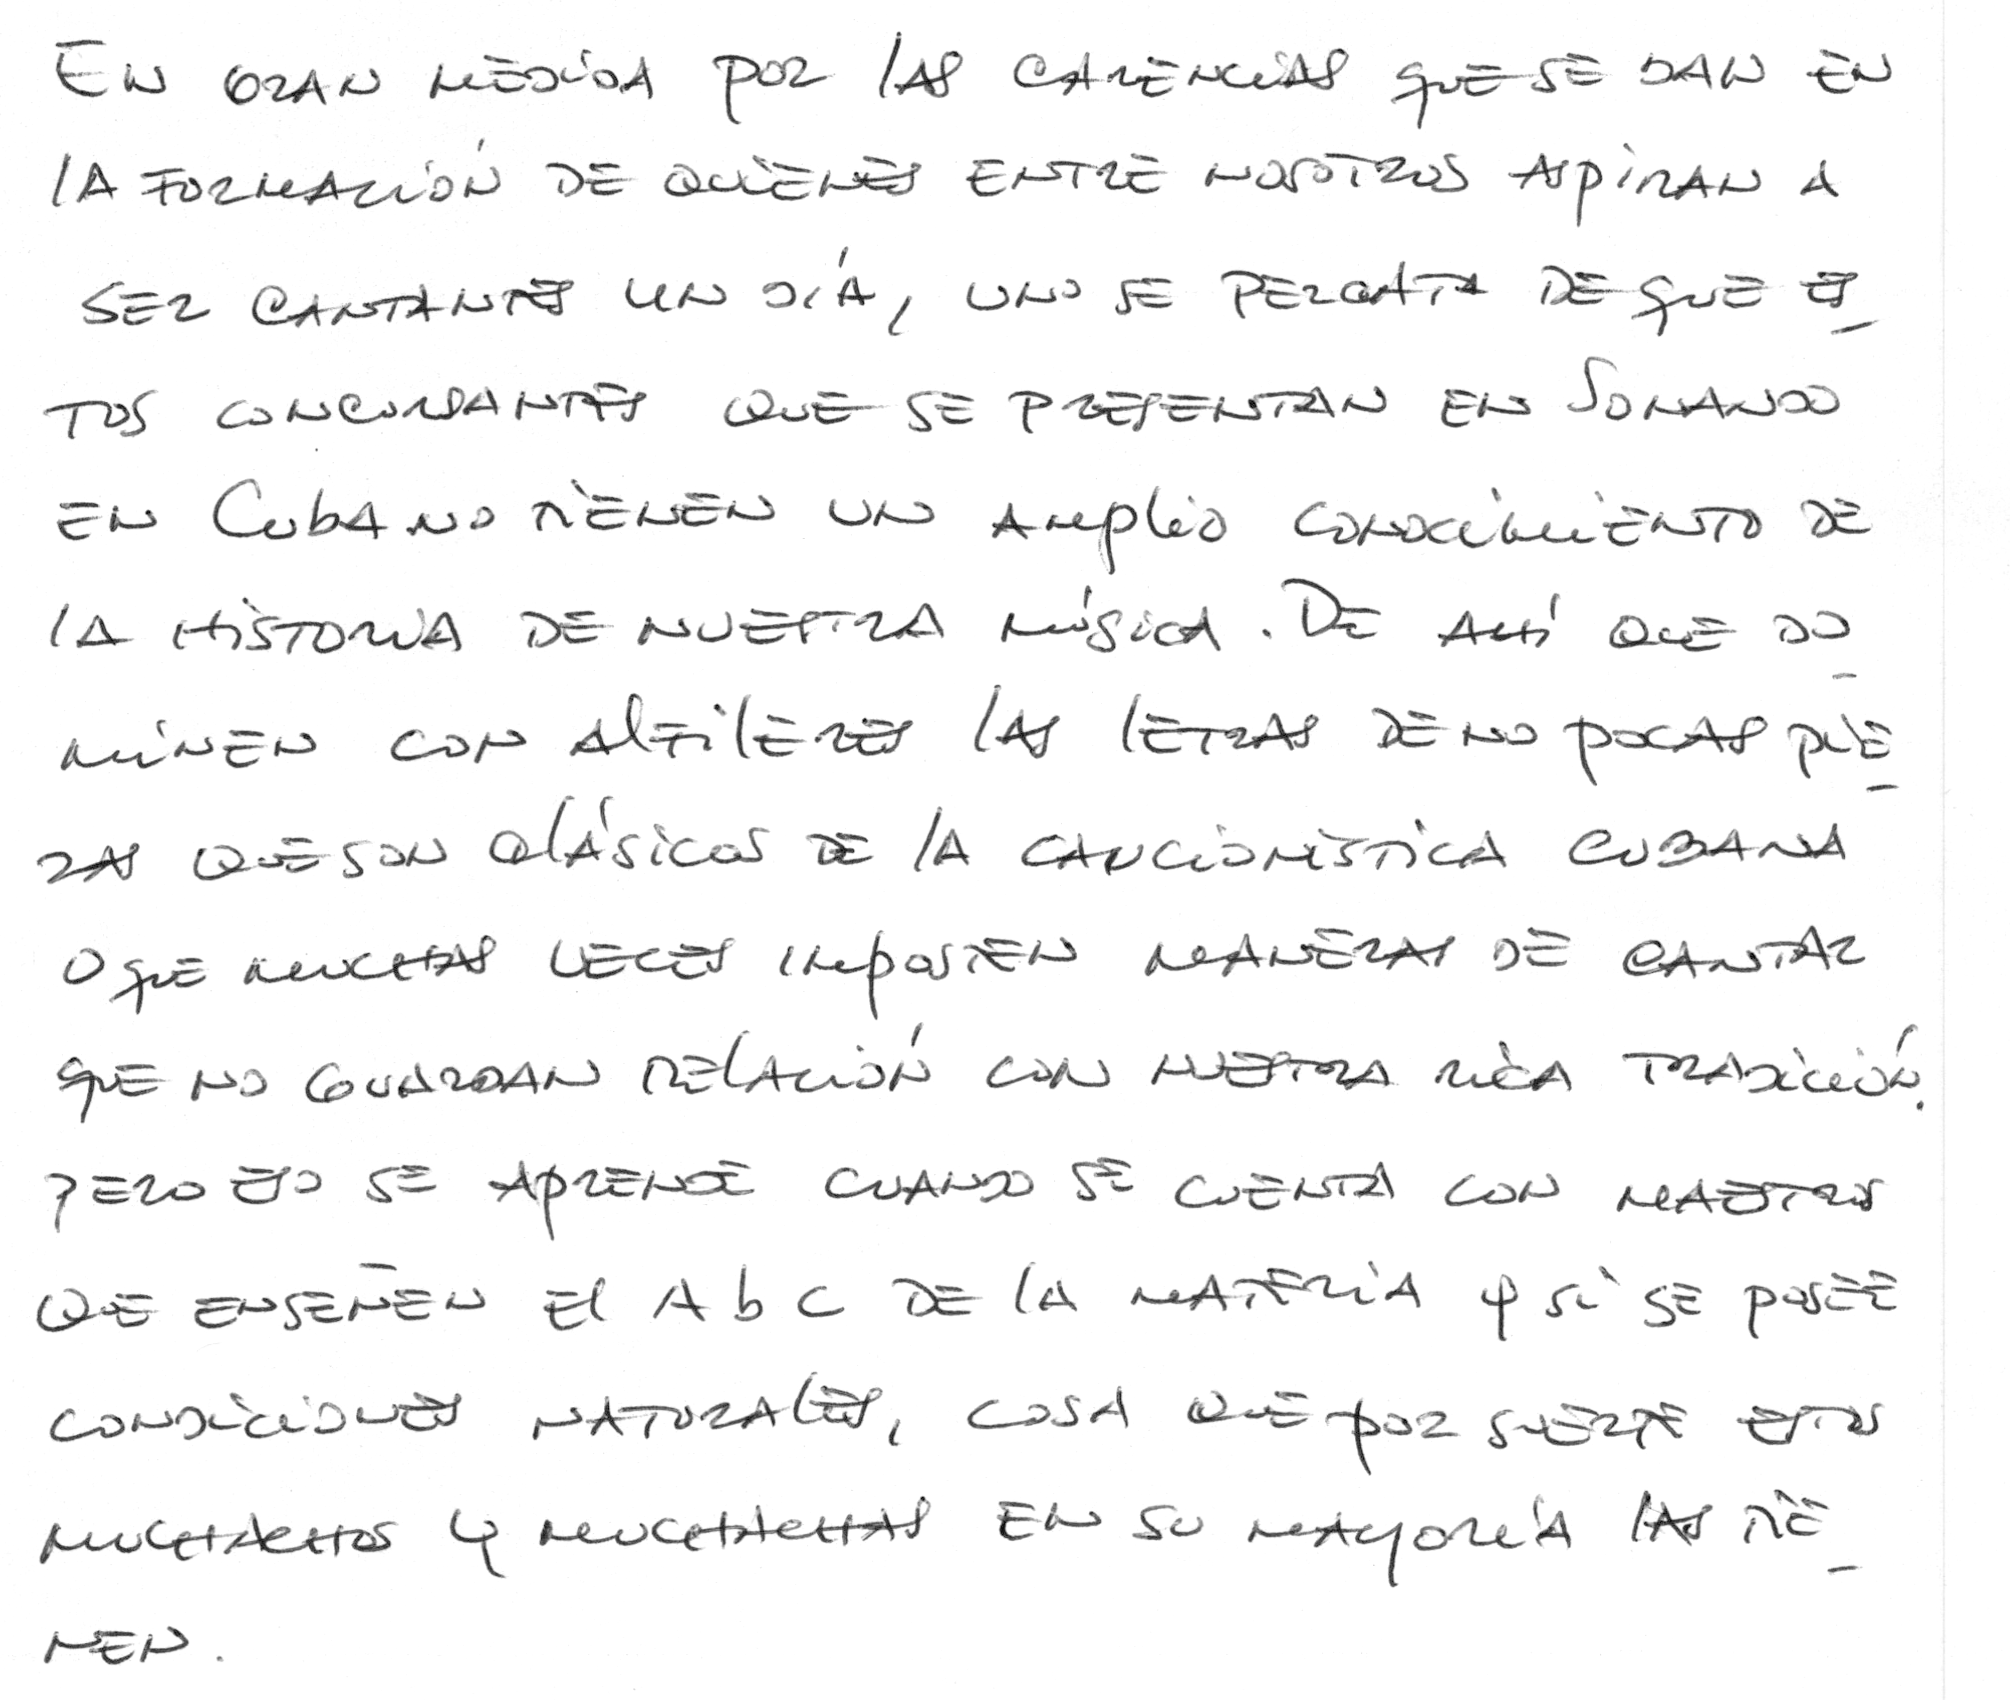 En gran medida por las carencias que se dan en
la formación de quienes entre nosotros aspiran a
ser cantantes un día, uno se percata de que es_
tos concursantes que se presentan en Sonando
en Cuba no tienen un amplio conocimiento de
la historia de nuestra música. De ahí que do_
minen con alfileres las letras de no pocas pie_
zas que son clásicos de la cancionística cubana
o que muchas veces imposten maneras de cantar
que no guardan relación con nuestra rica tradición.
Pero eso se aprende cuando se cuenta con maestros
que enseñen el A b c de la materia y si se posee
condiciones naturales, cosa que por suerte estos
muchachos y muchachas en su mayoría las tie_
nen.